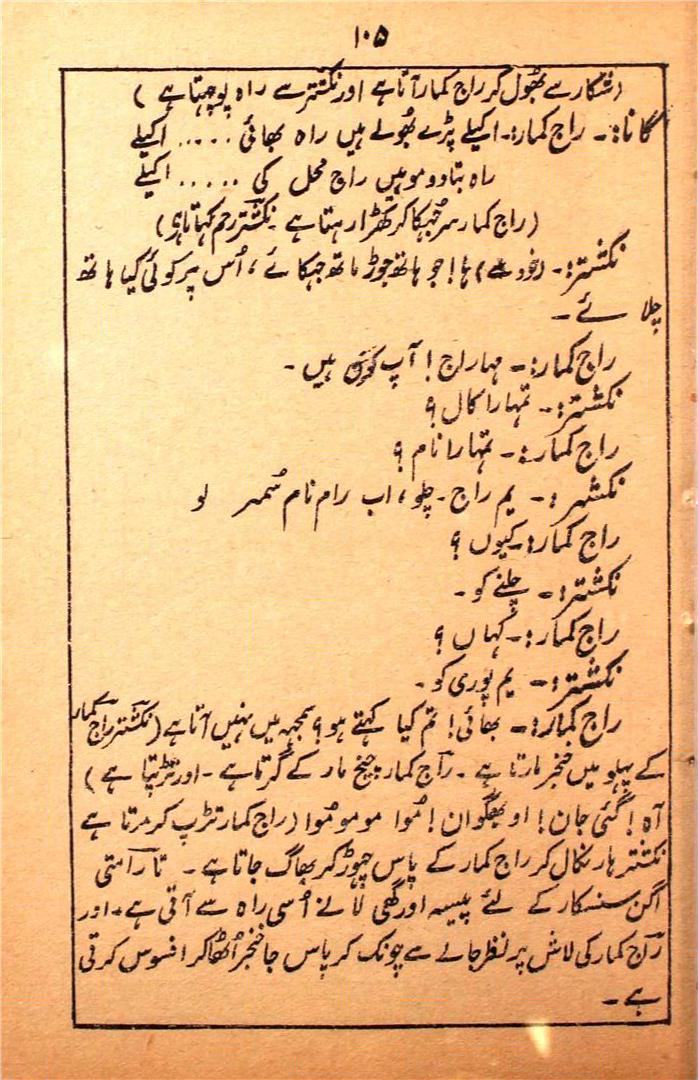 ۱۰۵
(شکار سے بھول کر راج کمار آتا ہے اور نکشتر سے راہ پوچھتا ہے)
گانا:۔ راج کمار:۔ اکیلے پڑے بھولے ہیں راہ بھائی ..... اکیلے
راہ بتا دو موہیں راج محل کی ..... اکیلے
(راج کمار سر جُہکا کر کھڑا رہتا ہے نکشتر رحم کہاتا ہے)
نکشتر:۔ (خود سے) ہا! جو ہاتھ جوڑ ماتھ جہکائے، اُس پر کوئی کیا ہاتھ
چلائے۔
راج کمار:۔ مہاراج! آپ کون ہیں۔
نکشتر:۔ تمہارا کال؟
راج کمار:۔ تمہارا نام؟
نکشتر:۔ یم راج۔ چلو، اب رام نام سُمر لو
راج کمار:۔ کیوں؟
نکشتر:۔ چلنے کو۔
راج کمار:۔ کہاں؟
نکشتر:۔ یم پوری کو۔
راج کمار:۔ بھائی! تم کیا کہتے ہو؟ سمجہہ میں نہیں آتا ہے (نکشتر راج کمار
کے پہلو میں خنجر مارتا ہے۔ راج کمار چیخ مار کے گرتا ہے۔ اور تڑپتا ہے)
آہ! گئی جان! او بھگوان! مُوا مو مو مُوا (راج کمار تڑپ کر مرتا ہے
نکشتر ہار نکال کر راج کمار کے پاس چہوڑ کر بھاگ جاتا ہے۔ تارامتی
اگن سنسکار کے لئے پیسہ اور گھی لانے اُسی راہ سے آتی ہے۔ اور
راج کمار کی لاش پر نظر جانے سے چونک کر پاس جا خنجر اُٹھا کر افسوس کرتی
ہے۔